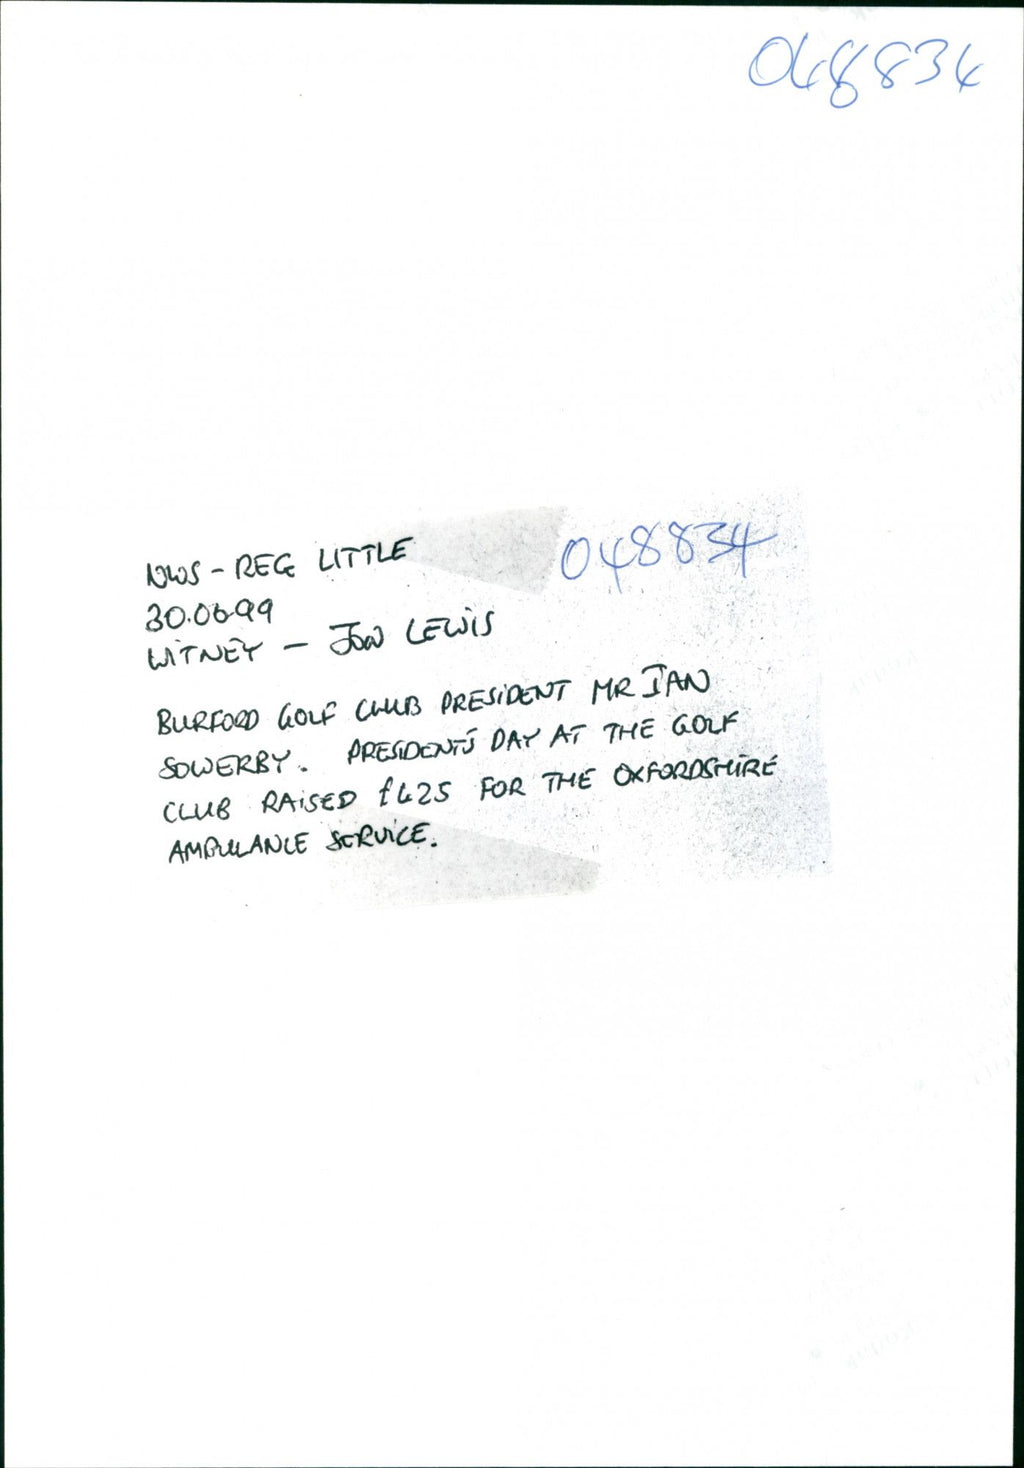 048834
NWS - REG LITTLE 048834
30.06.99
WITNEY - JON LEWIS
BURFORD GOLF CLUB PRESIDENT MR IAN
SOWERBY. PRESIDENT'S DAY AT THE GOLF
CLUB RAISED £425 FOR THE OXFORDSHIRE
AMBULANCE SERVICE.